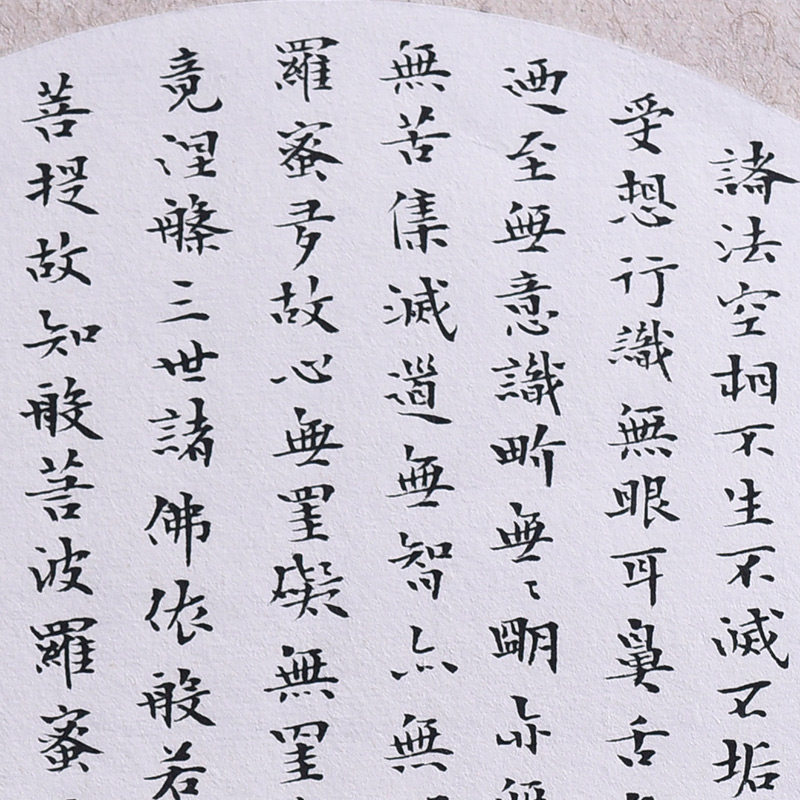 諸法空相不生不滅不垢
受想行識無眼耳鼻舌
迺至無意識畍無〻朙亦無
無苦集滅道無智亦無
羅蜜多故心無罣礙無罣
竟涅槃三世諸佛依般若
菩提故知般菩波羅蜜